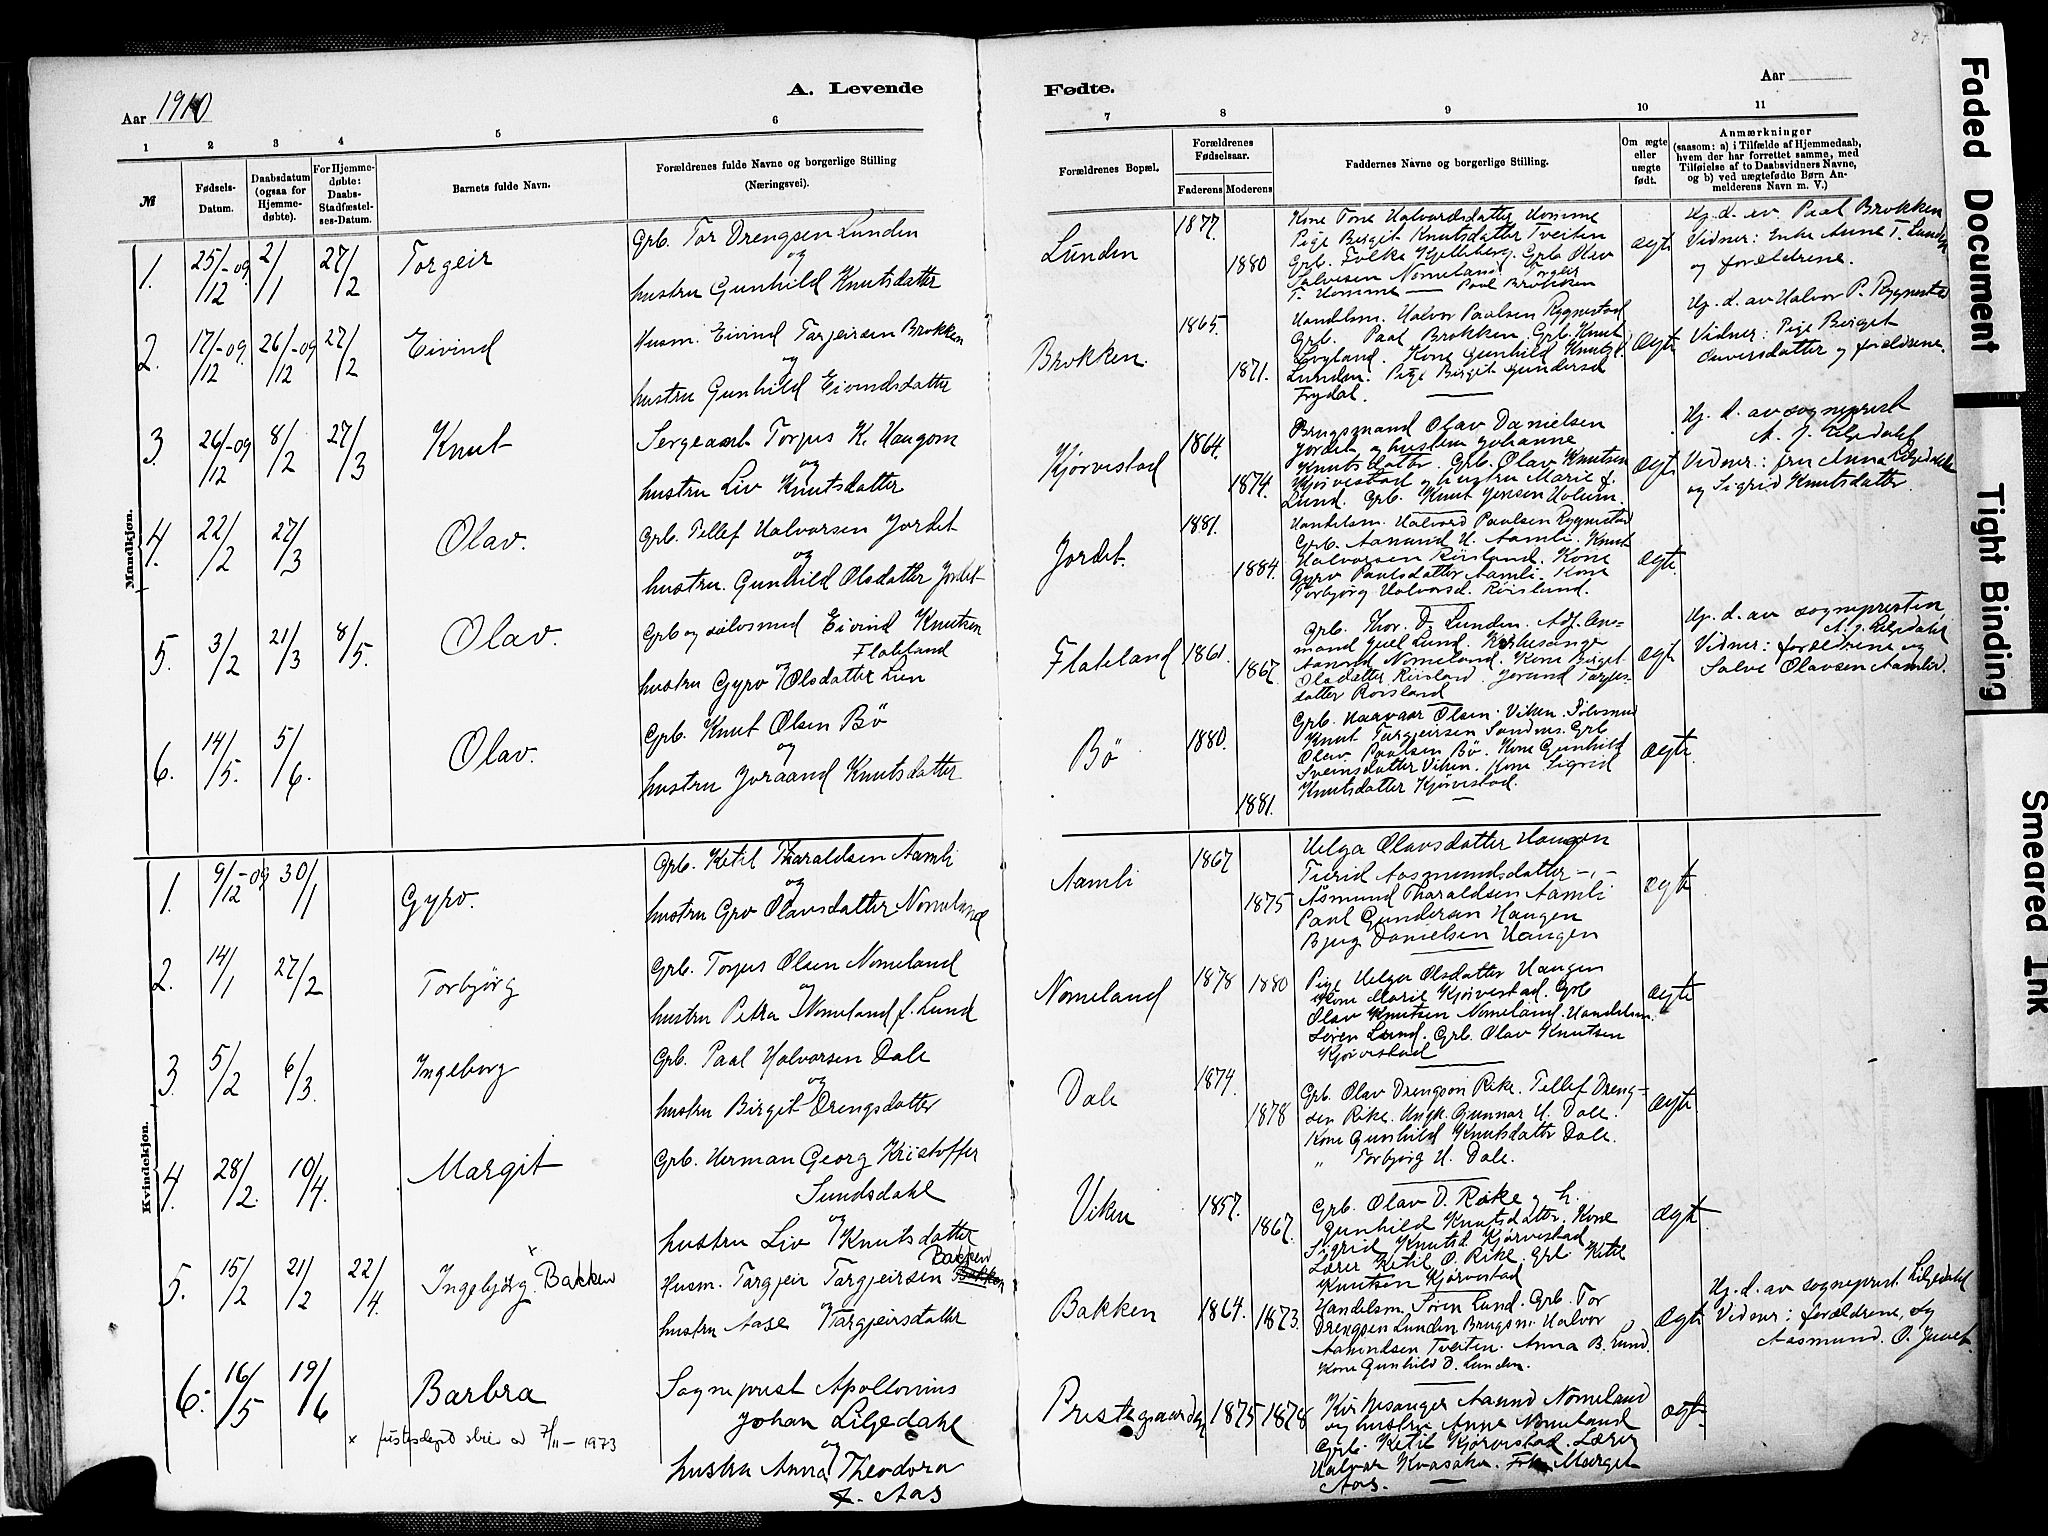 Aar 1910
A. Levende
1 2 3 4 5 6
№
Fødsels-
Datum.
Daabsdatum
(ogsaa for
Hjemme-
døbte).
For Hjemme-
døbte:
Daabs-
Stadfæstel-
ses-Datum.
Barnets fulde Navn.
Forældrenes fulde Navne og borgerlige Stilling
(Næringsvei).
Mandkjøn.
1. 25/12-09 2/1 27/2 Torgeir
Grb. Tor Drengsen Lunden
og
hustru Gunhild Knutsdatter
2. 17/12-09 26/12-09 27/2 Eivind
Husm. Eivind Targeirsen Brokken
og
hustru Gunhild Eivindsdatter
3. 26/12-09 8/2 27/3 Knut
Sergeant Torjus K. Haugom
og
hustru Liv Knutsdatter
4. 22/2 27/3 Olav.
Grb. Tellef Halvorsen Jordet
og
hustru. Gunhild Olsdatter Jordet
5. 3/2 21/3 8/5. Olav.
Grb og sølvsmed Eivind Knutsen
Flateland
og
hustru Gyro Olsdatter Lien
6. 14/5 5/6. Olav.
Grb. Knut Olsen Bö
og
hustru Joraand Knutsdatter
Kvindekjøn.
1. 9/12-09 30/1 Gyro.
Grb. Ketil Tharaldsen Aamli
og
hustru Gro Olavsdatter Nomeland
2. 14/1 27/2 Torbjørg
Grb. Torjus Olsen Nomeland
og
hustru Petra Nomeland f. Lund
3 5/2 6/3. Ingeborg
Grb. Paal Halvorsen Dale
og
hustru Birgit Drengsdatter
4. 28/2. 10/4. Margit
Grb. Herman Georg Kristoffer
Sundsdahl
og
hustru Liv Knutsdatter
5. 15/2 21/2 22/4. Ingebjörg x Bakken
Bakken
Husm. Targjeir Targjeirsen Bakken
og
hustru Aase Targjeirsdatter
6. 16/5 19/6 Barbra
Sogneprest Apollonius
Johan Liljedahl
og
hustru Anna Theodora
f. Aas
x 7/11-1973
Fødte.
Aar
7 8 9 10 11
Forældrenes Bopæl.
Forældrenes
Fødselsaar.
Faderens Moderens
Faddernes Navne og borgerlige Stilling.
Om ægte
eller
uægte
født.
Anmærkninger
(saasom: a) i Tilfælde af Hjemmedaab,
hvem der har forrettet samme, med
Tilføielse af to Daabsvidners Navne,
og b) ved uægtefødte Børn An-
melderens Navn m. V.)
Lunden 1877. 1880
Kone Tone Halvardsdatter Homme
Pige Birgit Knutsdatter Tveiten
Grb. Folke Kjelleberg. Grb Olav
Salvesen Nomeland. Torgeir
T. Homme — Paal Brokken
ægte
Hj. d. av Paal Brokken
Vidner: Enke Anne T. Lunden
og forældrene.
Brokken. 1865. 1871.
Handelsm. Halvor Paulsen Rygnestad
Grb. Paal Brokken. Grb. Knut
Lovland. Kone Gunhild Knutsd.
Lunden. Pige Birgit Gundersd
Frydal.
ægte
Hj. d. av Halvor P. Rygnestad
Vidner: Pige Birget
datter og forældrene.
Kjørvestad 1864. 1874.
Brugsmand Olav Danielsen
Jordet og hustru Johanne
Knutsdatter. Grb. Olav Knutsen
Kjørvestad og hustru Marie f.
Lund. Grb. Knut Jensen Holum.
ægte
Hj. d. av sogneprest
A. J. Liljedahl
Vidner: fru Anna Liljedahl
og Sigrid Knutsdatter.
Jordet. 1881. 1884.
Handelsm. Halvord Paulsen Rygnestad
Grb. Aanund H. Aamli. Knut
Halvorsen Rörsland. Kone
Gyro Paulsdatter Aamli. Kone
Torbjörg Halvorsd. Rörsland.
ægte.
Flateland 1861. 1867.
Grb. Thor. D. Lunden. Adj. Am=
mand Juel Lund. Kirkesanger
Aanund Nomeland. Kone Birget
Olsdatter Rörsland. Jorund Targjus-
datter Rörsland
ægte
Hj. d. av sognepresten
A. J. Liljedahl
Vidner: forældrene og
Salve Olavsen Aamlid.
Bö 1880. 1881.
Grb. Haavaar Olsen Viken. Sølvsmed
Knut Targjeirsen Sandnes. Grb
Olav Paalsen Bö. Kone Gunhild
Sveinsdatter Viken. Kone Sigrid
Knutsdatter Kjørvestad.
ægte.
Aamli 1867 1875
Helga Olavsdatter Haugen
Turid Aasmundsdatter -,-
Åsmund Tharaldsen Aamli
Paal Gundersen Haugen
Bjug Danielsen Haugen
ægte
Nomeland 1878 1880
Pige Helga Olsdatter Haugen
Kone Marie Kjørvestad. Grb
Olav Knutsen Nomeland. Handelsm.
Søren Lund. Grb. Olav Knutsen
Kjørvestad
ægte
Dale 1874. 1878
Grb. Olav Drengson Rike. Tellef Dreng-
sen Rike. Ungk. Gunnar H. Dale.
Kone Gunhild Knutsdatter Dale.
" Torbjörg H. Dale.
ægte
Viken 1857. 1867.
Grb. Olav D. Rike og h.
Gunhild Knutsdatter. Kone
Sigrid Knutsd Kjørvestad
Lærer Ketil O. Rike. Grb. Ketil
Knutsen Kjørvestad
ægte
Bakken 1864. 1873.
Handelsm. Søren Lund. Grb. Tor
Drengsen Lunden Brugsm. Halvor
Aamundsen Tveiten. Anna B. Lund.
Kone Gunhild D. Lunden.
ægte
Hj. d. av sogneprest. Liljedahl
Vidner: forældrene, og
Aasmund. O. Juvet.
Prestegaarden 1875 1878.
Kirkesanger Aanund Nomeland
og hustru Anne Nomeland
Grb. Ketil Kjørvestad. Lærer
Halvar Kvasaker. Frk. Marget
Aas.
ægte
Faded Document
Tight Binding
Smeared Ink